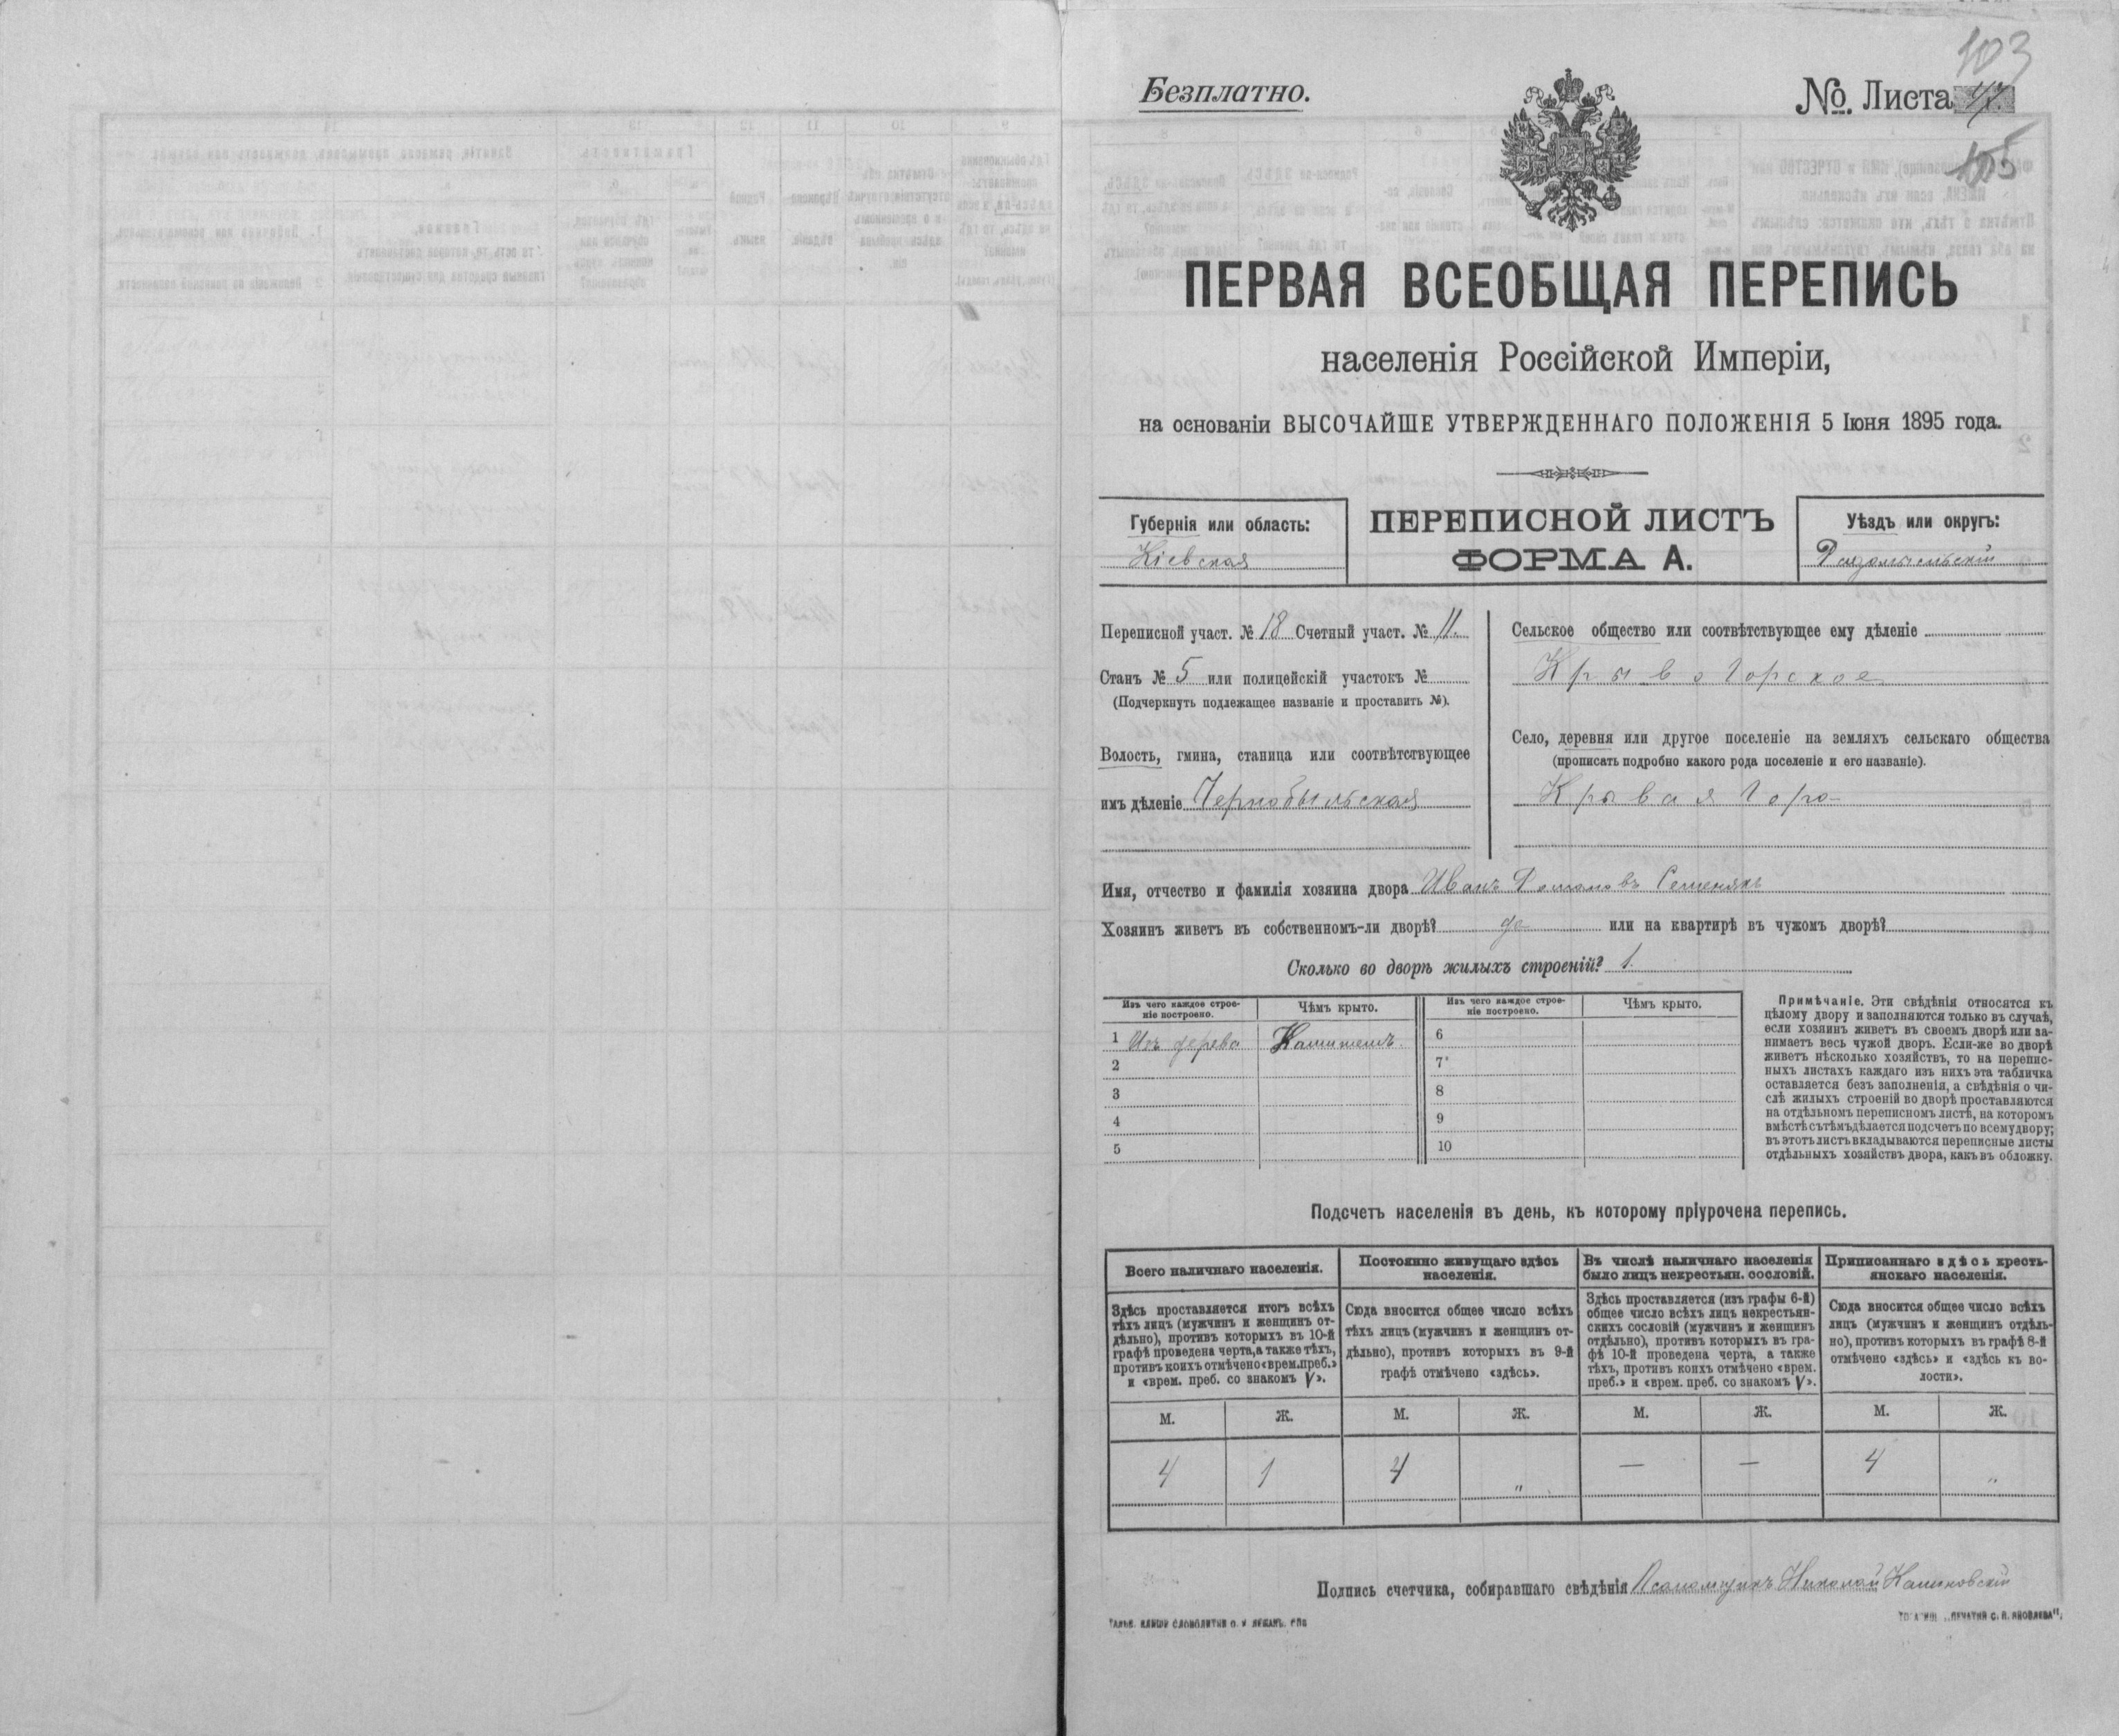 103
Безплатно.
№. Листа 47.
105
ПЕРВАЯ ВСЕОБЩАЯ ПЕРЕПИСЬ
населенія Россійской Имперіи,
на основаніи ВЫСОЧАЙШЕ УТВЕРЖДЕННАГО ПОЛОЖЕНІЯ 5 Іюня 1895 года.
Губернія или область:
Кіевская
ПЕРЕПИСНОЙ ЛИСТЪ
ФОРМА А.
Уѣздъ или округъ:
Радомысльскій
Переписной участ. № 18 Счетный участ. № 11.
Станъ № 5 или полицейскій участокъ №
(Подчеркнуть подлежащее названіе и проставить №).
Волость, гмина, станица или соотвѣтствующее
имъ дѣленіе Чернобыльская
Сельское общество или соотвѣтствующее ему дѣленіе
Крывогорское
Село, деревня или другое поселеніе на земляхъ сельскаго общества
(прописать подробно какого рода поселеніе и его названіе).
Крывая Гора
Имя, отчество и фамилія хозяина двора Иванъ Романовъ Семенякъ
Хозяинъ живетъ въ собственномъ-ли дворѣ? да или на квартирѣ въ чужомъ дворѣ?
Сколько во дворѣ жилыхъ строеній? 1.
Изъ чего каждое строе-
ніе построено.
Чѣмъ крыто.
Изъ чего каждое строе-
ніе построено.
Чѣмъ крыто.
1 Изъ дерева Камышемъ. 6
2 7
3 8
4 9
5 10
Примѣчаніе. Эти свѣдѣнія относятся къ
цѣлому двору и заполняются только въ случаѣ,
если хозяинъ живетъ въ своемъ дворѣ или за-
нимаетъ весь чужой дворъ. Если-же во дворѣ
живетъ нѣсколько хозяйствъ, то на перепис-
ныхъ листахъ каждаго изъ нихъ эта табличка
оставляется безъ заполненія, а свѣдѣнія о чи-
слѣ жилыхъ строеній во дворѣ проставляются
на отдѣльномъ переписномъ листѣ, на которомъ
вмѣстѣ съ тѣмъ дѣлается подсчетъ по всему двору;
въ этотъ листъ вкладываются переписные листы
отдѣльныхъ хозяйствъ двора, какъ въ обложку.
Подсчетъ населенія въ день, къ которому пріурочена перепись.
Всего наличнаго населенія.
Постоянно живущаго здѣсь
населенія.
Въ числѣ наличнаго населенія
было лицъ некрестьян. сословій.
Приписаннаго здѣсь кресть-
янскаго населенія.
Здѣсь проставляется итогъ всѣхъ
тѣхъ лицъ (мужчинъ и женщинъ от-
дѣльно), противъ которыхъ въ 10-й
графѣ проведена черта, а также тѣхъ,
противъ коихъ отмѣчено «врем. преб.»
и «врем. преб. со знакомъ V».
Сюда вносится общее число всѣхъ
тѣхъ лицъ (мужчинъ и женщинъ от-
дѣльно), противъ которыхъ въ 9-й
графѣ отмѣчено «здѣсь».
Здѣсь проставляется (изъ графы 6-й)
общее число всѣхъ лицъ некрестьян-
скихъ сословій (мужчинъ и женщинъ
отдѣльно), противъ которыхъ въ гра-
фѣ 10-й проведена черта, а также
тѣхъ, противъ коихъ отмѣчено «врем.
преб.» и «врем. преб. со знакомъ V».
Сюда вносится общее число всѣхъ
лицъ (мужчинъ и женщинъ отдѣль-
но), противъ которыхъ въ графѣ 8-й
отмѣчено «здѣсь» и «здѣсь къ во-
лости».
М. Ж. М. Ж. М. Ж. М. Ж.
4 1 4 „ — — 4 „
Подпись счетчика, собиравшаго свѣдѣнія Псаломщикъ Николай Калиновскій